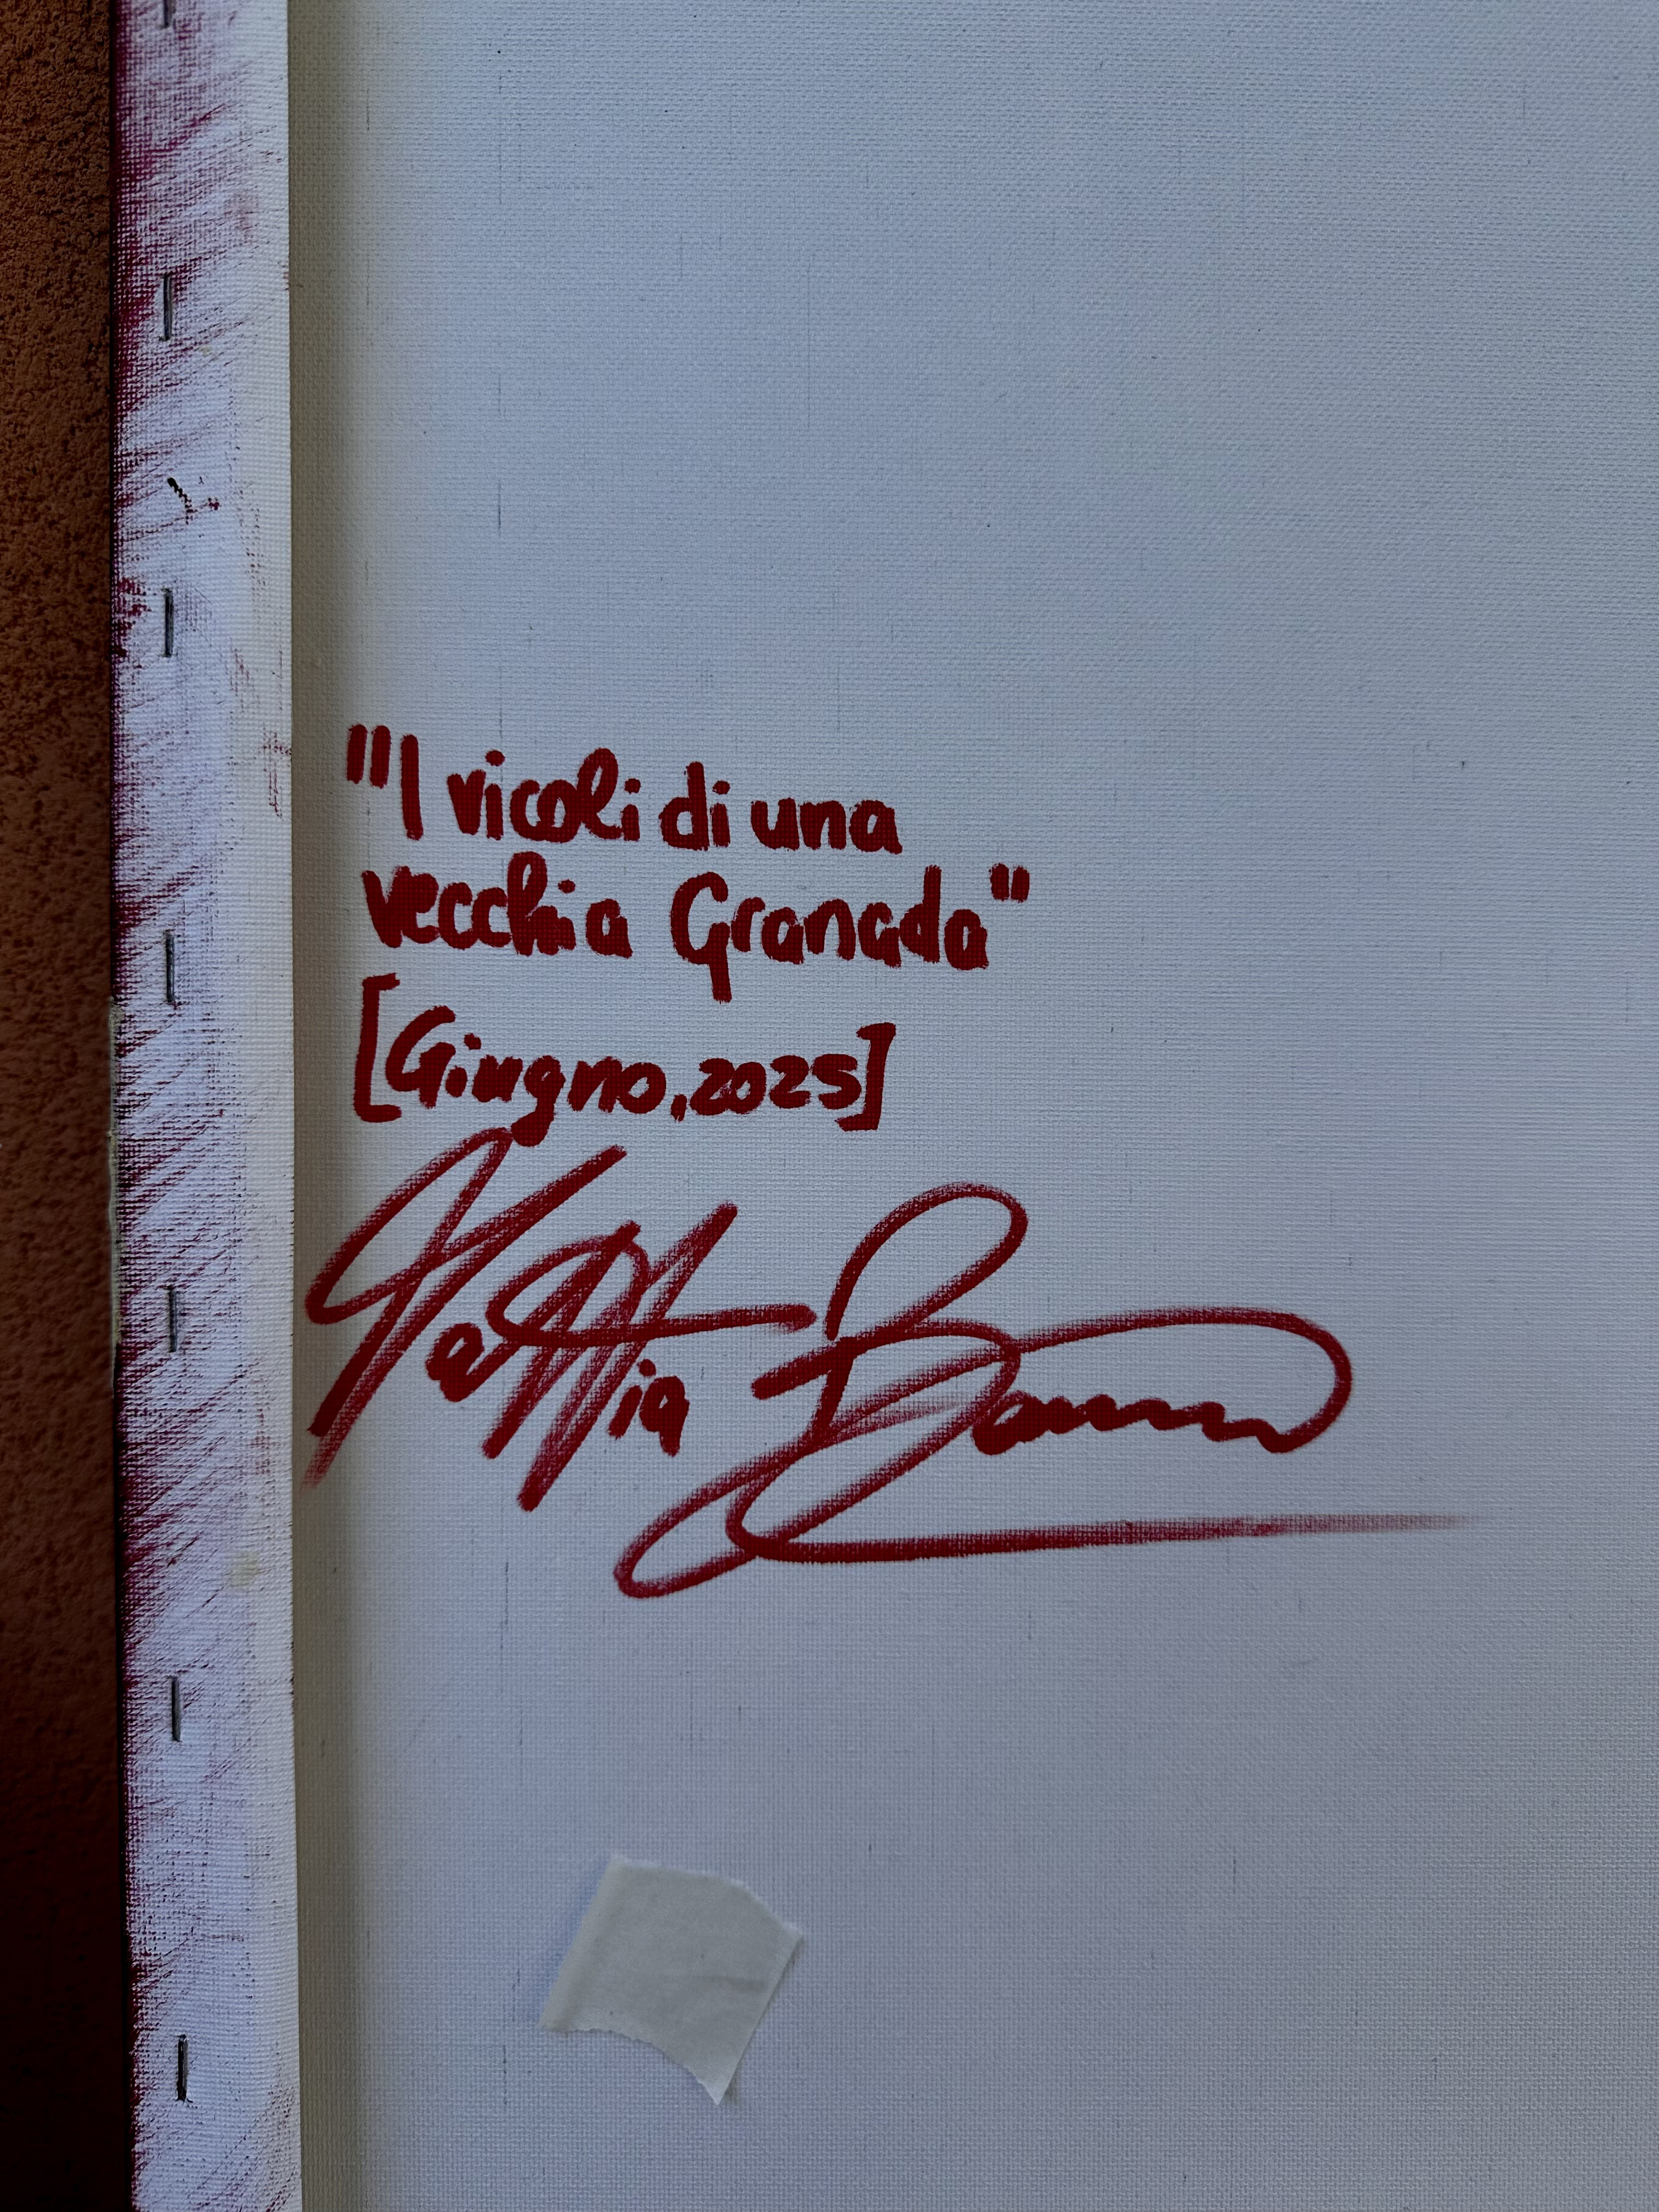 "I vicoli di una
vecchia Granada"
[Giugno, 2025]
Mattia